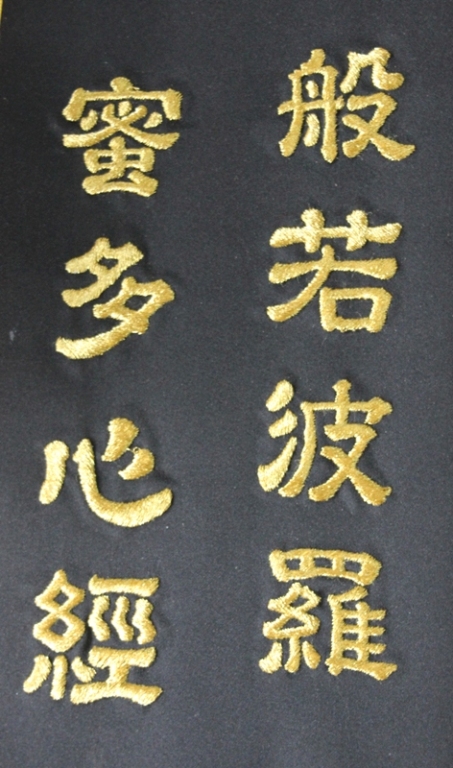 般若波羅
蜜多心經